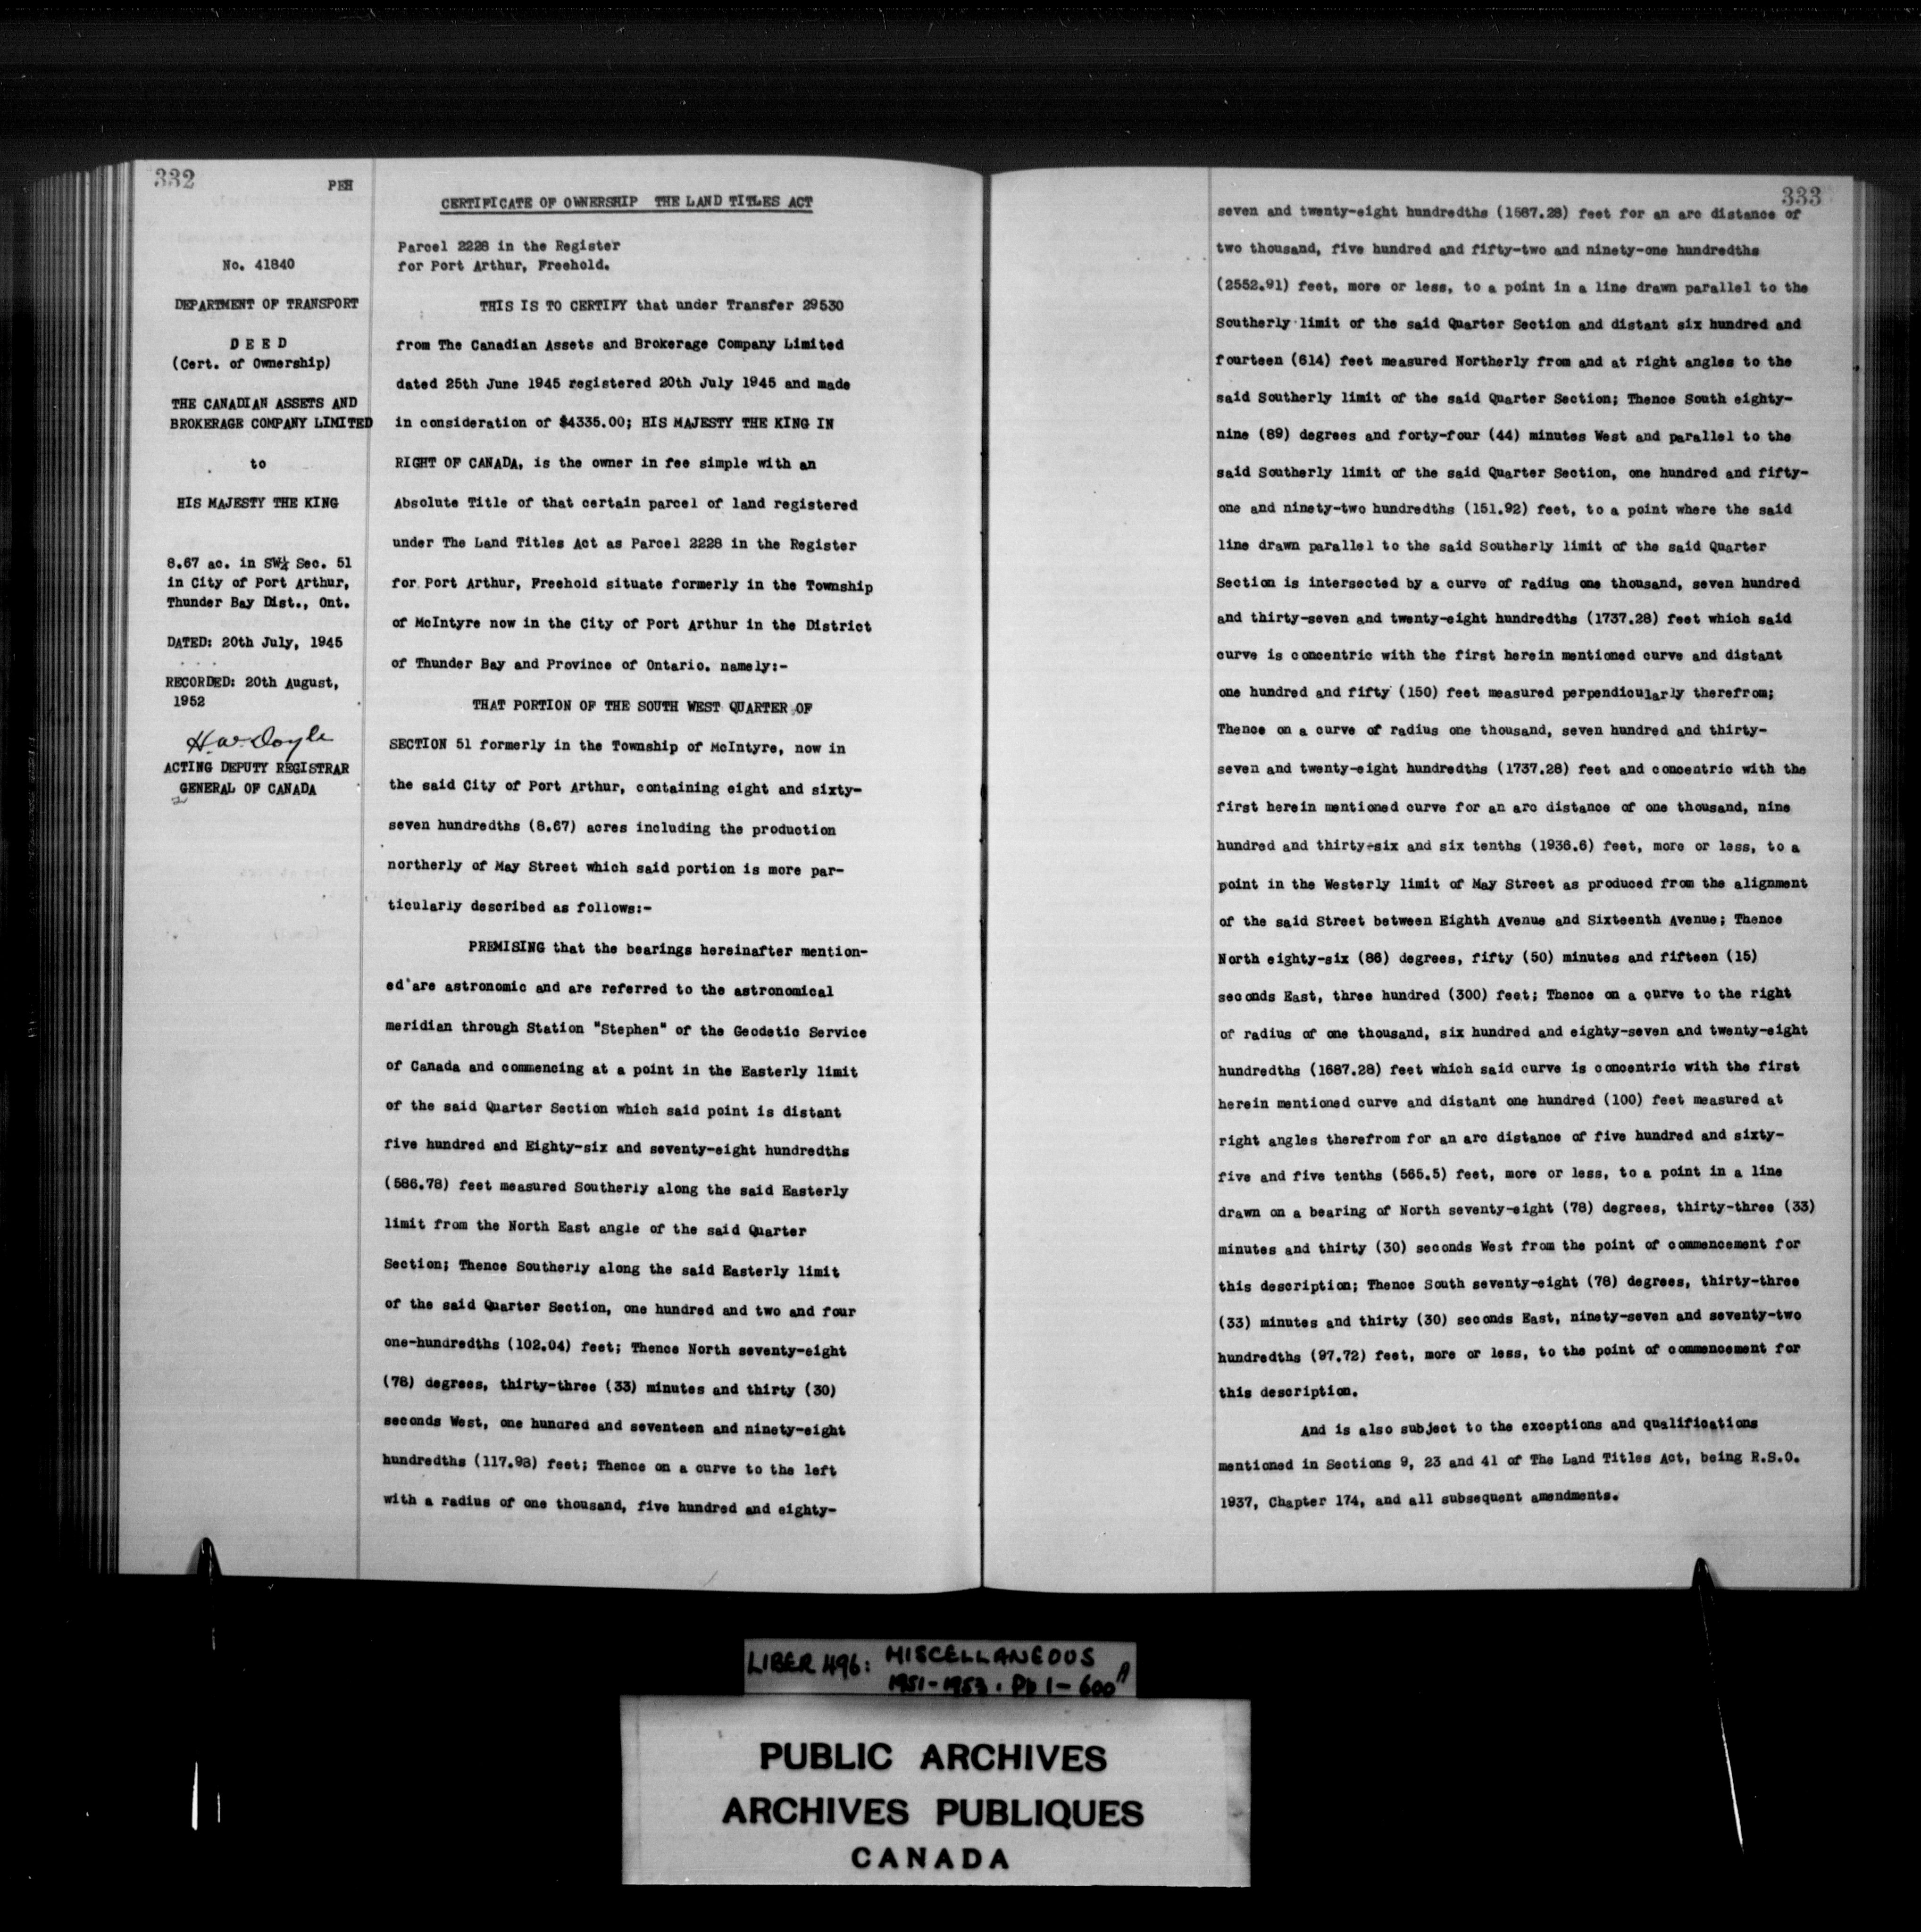 332
PEH
No. 41840
DEPARTMENT OF TRANSPORT
D E E D
(Cert. of Ownership)
THE CANADIAN ASSETS AND
BROKERAGE COMPANY LIMITED
to
HIS MAJESTY THE KING
8.67 ac. in SW¼ Sec. 51
in City of Port Arthur,
Thunder Bay Dist., Ont.
DATED: 20th July, 1945
RECORDED: 20th August,
1952
H.W. Doyle
ACTING DEPUTY REGISTRAR
GENERAL OF CANADA
CERTIFICATE OF OWNERSHIP THE LAND TITLES ACT
Parcel 2228 in the Register
for Port Arthur, Freehold.
THIS IS TO CERTIFY that under Transfer 29530
from The Canadian Assets and Brokerage Company Limited
dated 25th June 1945 registered 20th July 1945 and made
in consideration of $4335.00; HIS MAJESTY THE KING IN
RIGHT OF CANADA, is the owner in fee simple with an
Absolute Title of that certain parcel of land registered
under The Land Titles Act as Parcel 2228 in the Register
for Port Arthur, Freehold situate formerly in the Township
of McIntyre now in the City of Port Arthur in the District
of Thunder Bay and Province of Ontario. namely:-
THAT PORTION OF THE SOUTH WEST QUARTER OF
SECTION 51 formerly in the Township of McIntyre, now in
the said City of Port Arthur, containing eight and sixty-
seven hundredths (8.67) acres including the production
northerly of May Street which said portion is more par-
ticularly described as follows:-
PREMISING that the bearings hereinafter mention-
ed are astronomic and are referred to the astronomical
meridian through Station "Stephen" of the Geodetic Service
of Canada and commencing at a point in the Easterly limit
of the said Quarter Section which said point is distant
five hundred and Eighty-six and seventy-eight hundredths
(586.78) feet measured Southerly along the said Easterly
limit from the North East angle of the said Quarter
Section; Thence Southerly along the said Easterly limit
of the said Quarter Section, one hundred and two and four
one-hundredths (102.04) feet; Thence North seventy-eight
(78) degrees, thirty-three (33) minutes and thirty (30)
seconds West, one hundred and seventeen and ninety-eight
hundredths (117.98) feet; Thence on a curve to the left
with a radius of one thousand, five hundred and eighty-
333
seven and twenty-eight hundredths (1587.28) feet for an arc distance of
two thousand, five hundred and fifty-two and ninety-one hundredths
(2552.91) feet, more or less, to a point in a line drawn parallel to the
Southerly limit of the said Quarter Section and distant six hundred and
fourteen (614) feet measured Northerly from and at right angles to the
said Southerly limit of the said Quarter Section; Thence South eighty-
nine (89) degrees and forty-four (44) minutes West and parallel to the
said Southerly limit of the said Quarter Section, one hundred and fifty-
one and ninety-two hundredths (151.92) feet, to a point where the said
line drawn parallel to the said Southerly limit of the said Quarter
Section is intersected by a curve of radius one thousand, seven hundred
and thirty-seven and twenty-eight hundredths (1737.28) feet which said
curve is concentric with the first herein mentioned curve and distant
one hundred and fifty (150) feet measured perpendicularly therefrom;
Thence on a curve of radius one thousand, seven hundred and thirty-
seven and twenty-eight hundredths (1737.28) feet and concentric with the
first herein mentioned curve for an arc distance of one thousand, nine
hundred and thirty-six and six tenths (1936.6) feet, more or less, to a
point in the Westerly limit of May Street as produced from the alignment
of the said Street between Eighth Avenue and Sixteenth Avenue; Thence
North eighty-six (86) degrees, fifty (50) minutes and fifteen (15)
seconds East, three hundred (300) feet; Thence on a curve to the right
of radius of one thousand, six hundred and eighty-seven and twenty-eight
hundredths (1687.28) feet which said curve is concentric with the first
herein mentioned curve and distant one hundred (100) feet measured at
right angles therefrom for an arc distance of five hundred and sixty-
five and five tenths (565.5) feet, more or less, to a point in a line
drawn on a bearing of North seventy-eight (78) degrees, thirty-three (33)
minutes and thirty (30) seconds West from the point of commencement for
this description; Thence South seventy-eight (78) degrees, thirty-three
(33) minutes and thirty (30) seconds East, ninety-seven and seventy-two
hundredths (97.72) feet, more or less, to the point of commencement for
this description.
And is also subject to the exceptions and qualifications
mentioned in Sections 9, 23 and 41 of The Land Titles Act, being R.S.O.
1937, Chapter 174, and all subsequent amendments.
LIBER 496: MISCELLANEOUS
1951-1953. Pp 1-600A
PUBLIC ARCHIVES
ARCHIVES PUBLIQUES
CANADA